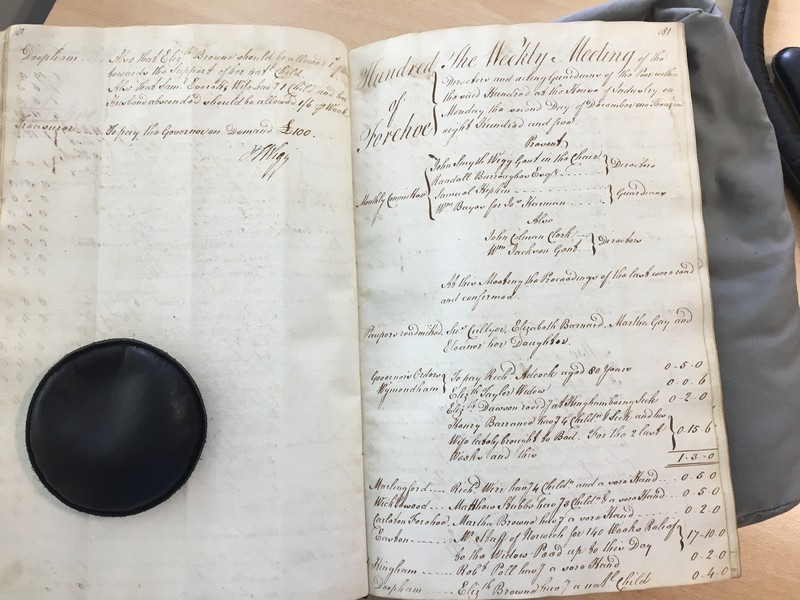 Deopham .... Also that Eliz.th Browne should be allowed 1s/ p week
towards the Support of her nat.l Child
Also that Sam. Everitts Wife hav.g 1 Child and her
Husband absconded should be allowed 1/6 p.r Week
Treasurer ..... To pay the Governor on Demand £100.
JS Wigg
181
Hundred of Forehoe
The Weekly Meeting of the
Directors and acting Guardians of the Poor within
the said Hundred at the House of Industry on
Monday the second Day of December one Thousand
eight Hundred and five
Present
Monthly Committee
John Smyth Wigg Gent in the Chair
Randall Burroughes Esq.r
Directors
Samuel Hipkin
Wm Bayes for Jo.s Harman
Guardians
Also
John Colman Clerk
Wm Jackson Gent
Directors
At this Meeting the Proceedings of the last were read
and confirmed.
Paupers readmitted. Cullyer, Elizabeth Barnard, Martha Gay and
Eleanor her Daughter.
Governors Orders
Wymondham
To pay Rich.d Adcock aged 80 Years 0-5-0
Eliz.th Taylor Widow 0-0-6
Eliz.th Dawson resid.g at Hingham being Sick 0-2-0
Henry Barrance hav.g 4 Child.n Sick and his
Wife lately brought to Bed. For the 2 last
Weeks and this
0-15-6
1-3-0
Marlingford .... Rich.d Weir hav.g 4 Child.n and a sore Hand .... 0 5 0
Wicklewood ---- Matthew Stubbs hav.g 3 Child.n & a sore Hand .... 0 5 0
Carleton Forehoe. Martha Browne hav.g a sore Hand .... 0 2 0
Easton ---- Mr Staff of Norwich for 140 Weeks Relief
to the Widow Pead up to this Day
17-10-0
Hingham ---- Rob.t Poll hav.g a sore Hand 0-2-0
Deopham ---- Eliz.th Browne hav.g a nat.l Child 0-4-0